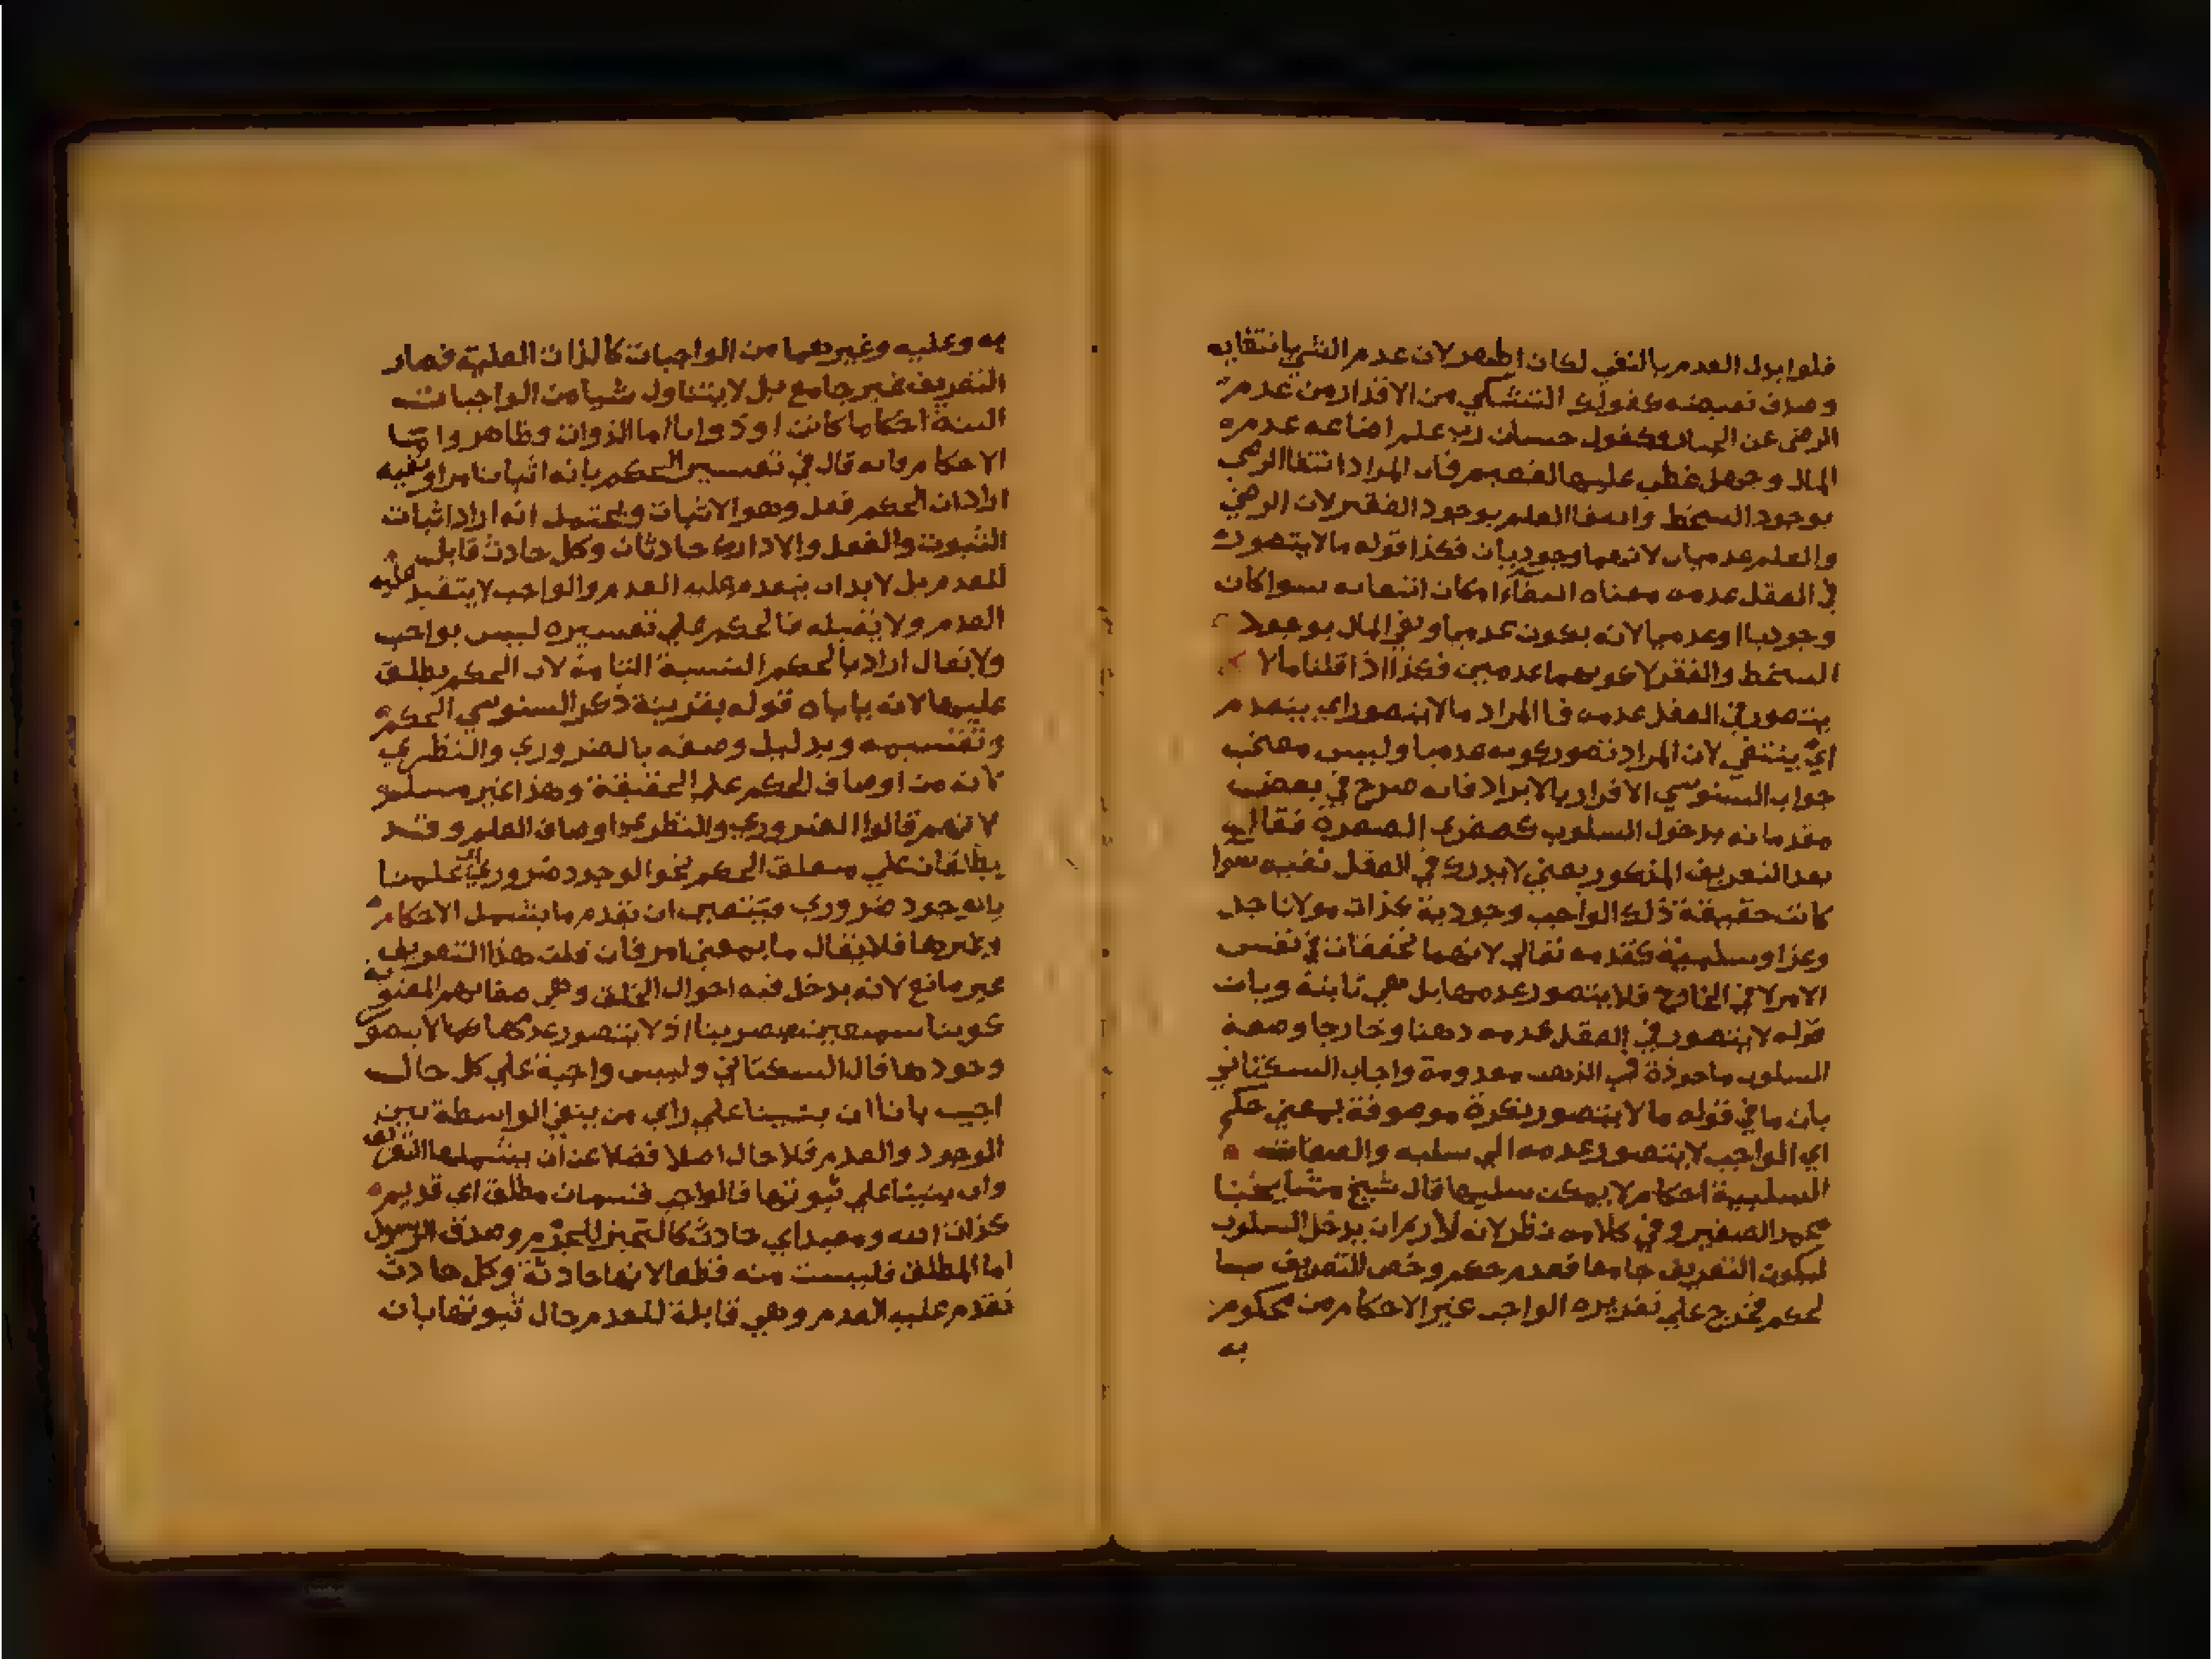 فلو ابدل العدم بالنفي لكان اظهر لان عدم الشي انتفايه
وصدق نقيضه كقولك التشكي من الاقدار من عدم
الرضى عن الجبار وكقول حسان رب علم اضاعه عدم
المال وجهل غطى عليه النعيم فان المراد انتفا الرضى
بوجود السخط وانتفا العلم بوجود الفقر لان الرضى
والعلم عدميان لانهما وجوديان فكذا قوله ما لا يتصور
في العقل عدمه معناه امكان انتفايه سوا كان
وجوديا او عدميا لانه يكون عدميا ونفي المال بوجود
السخط والفقر لا كونهما عدميين فكذا اذا قلنا ما لا
يتصور في العقل عدمه فالمراد ما لا يتصور اي ينعدم
اي ينتفي لان المراد تصور كونه عدميا وليس
جواب السنوسي الاقرار بالايراد فانه صرح في بعض
مقدماته بدخول السلوب كصغرى الصغرى فقال
بعد التعريف المذكور يعني لا يدرك في العقل نفيه سوا
كانت حقيقة ذلك الواجب وجودية كذات مولانا جل
وعز او سلبية كقدمه تعالى لانهما تحققان في نفس
الامر لا في الخارج فلا يتصور عدمها بل هي ثابتة وبان
قوله لا يتصور في العقل عدمه ذهنا وخارجا وصفة
السلوب ماخوذة في الذهن معدومة واجاب السكتاني
بان ما في قوله ما لا يتصور نكرة موصوفة بمعنى حكم
اي الواجب لا يتصور عدمه الي سلبه والصفات
السلبية احكام لا يمكن سلبها قال شيخ مشايخنا
محمد الصغير وفي كلامه نظر لانه لا اراد ان يدخل السلوب
ليكون التعريف جامعا فعدم حكم وخص التعريف
لحكم فخرج علي تقريره الواجب غير الاحكام من محكوم
به
به وعليه وغيرهما من الواجبات كالذات العلية فصار
التعريف غير جامع بل لا يتناول شيا من الواجبات
البتة احكاما كانت او ذواتا اما الذوات فظاهر واما
الاحكام فانه قال في تفسير الحكم بانه اثبات امر او نفيه
اراد ان الحكم فعل وهو الاثبات ويحتمل انه اراد اثبات
الثبوت والفعل والادراك حادثان وكل حادث قابل
للعدم بل لا بد ان يتقدم عليه العدم والواجب لا يتقدم عليه
العدم ولا يقبله فالحكم علي تفسيره ليس بواجب
ولا يقال اراد بالحكم النسبة التامة لان الحكم يطلق
عليها لانه ياباه قوله بقرينة ذكر السنوسي الحكم
وتقسيمه وبدليل وصفه بالضروري والنظري
لانه من اوصاف الحكم علي الحقيقة وهذا غير مسلم
لانهم قالوا الضروري والنظري اوصاف العلم وقد
يطلقان علي متعلق الحكم نحو الوجود ضروري اي علمنا
بانه وجود ضروري فيتعين ان تقدم ما يشمل الاحكام
وغيرها فلا يقال ما بمعنى امر فان قلت هذا التعريف
غير مانع لانه يدخل فيه احوال الخلق وهي صفاتهم المعنوية
ككوننا سميعين بصيرين اذ لا يتصور عدمها كما لا يتصور
وجودها قال السكتاني وليس واجبة علي كل حال
اجيب بانا ان بنينا علي راي من ينفي الواسطة بين
الوجود والعدم فلا حال اصلا فضلا عن ان يشملها التعريف
وان بنينا علي ثبوتها فالواجب قسمان مطلق اي قديم
كذات الله ومقيد اي حادث كالتحيز للجرم وصدق الرسول
اما المطلق فليست منه قطعا لانها حادثة وكل حادث
تقدم عليه العدم وهي قابلة للعدم حال ثبوتها بان